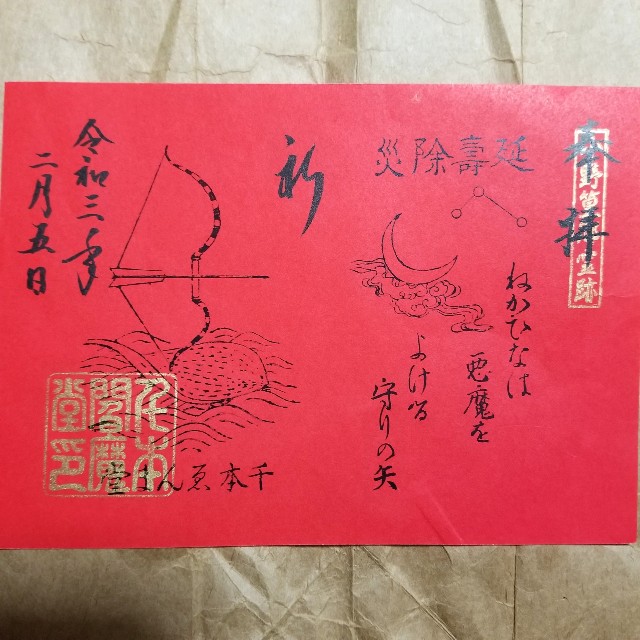 奉拝
延壽除災
ねがひなは
悪魔を
よける
守りの矢
祈
千本ゑんま堂
令和三年
二月五日
千本閻魔堂印